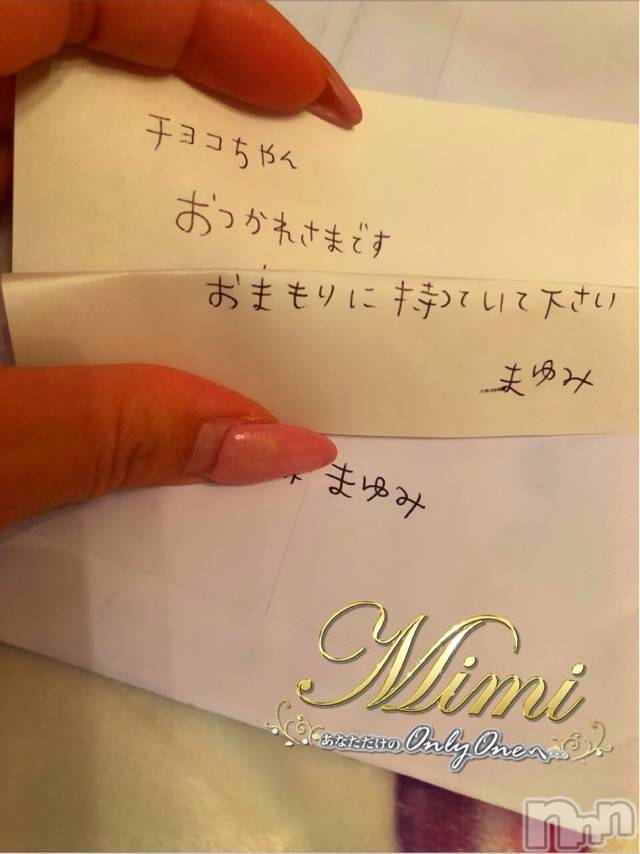 チヨコちゃん
おつかれさまです
おまもりに持っていて下さい
まゆみ
まゆみ
Mimi
あなただけの Only Oneへ…
nnn